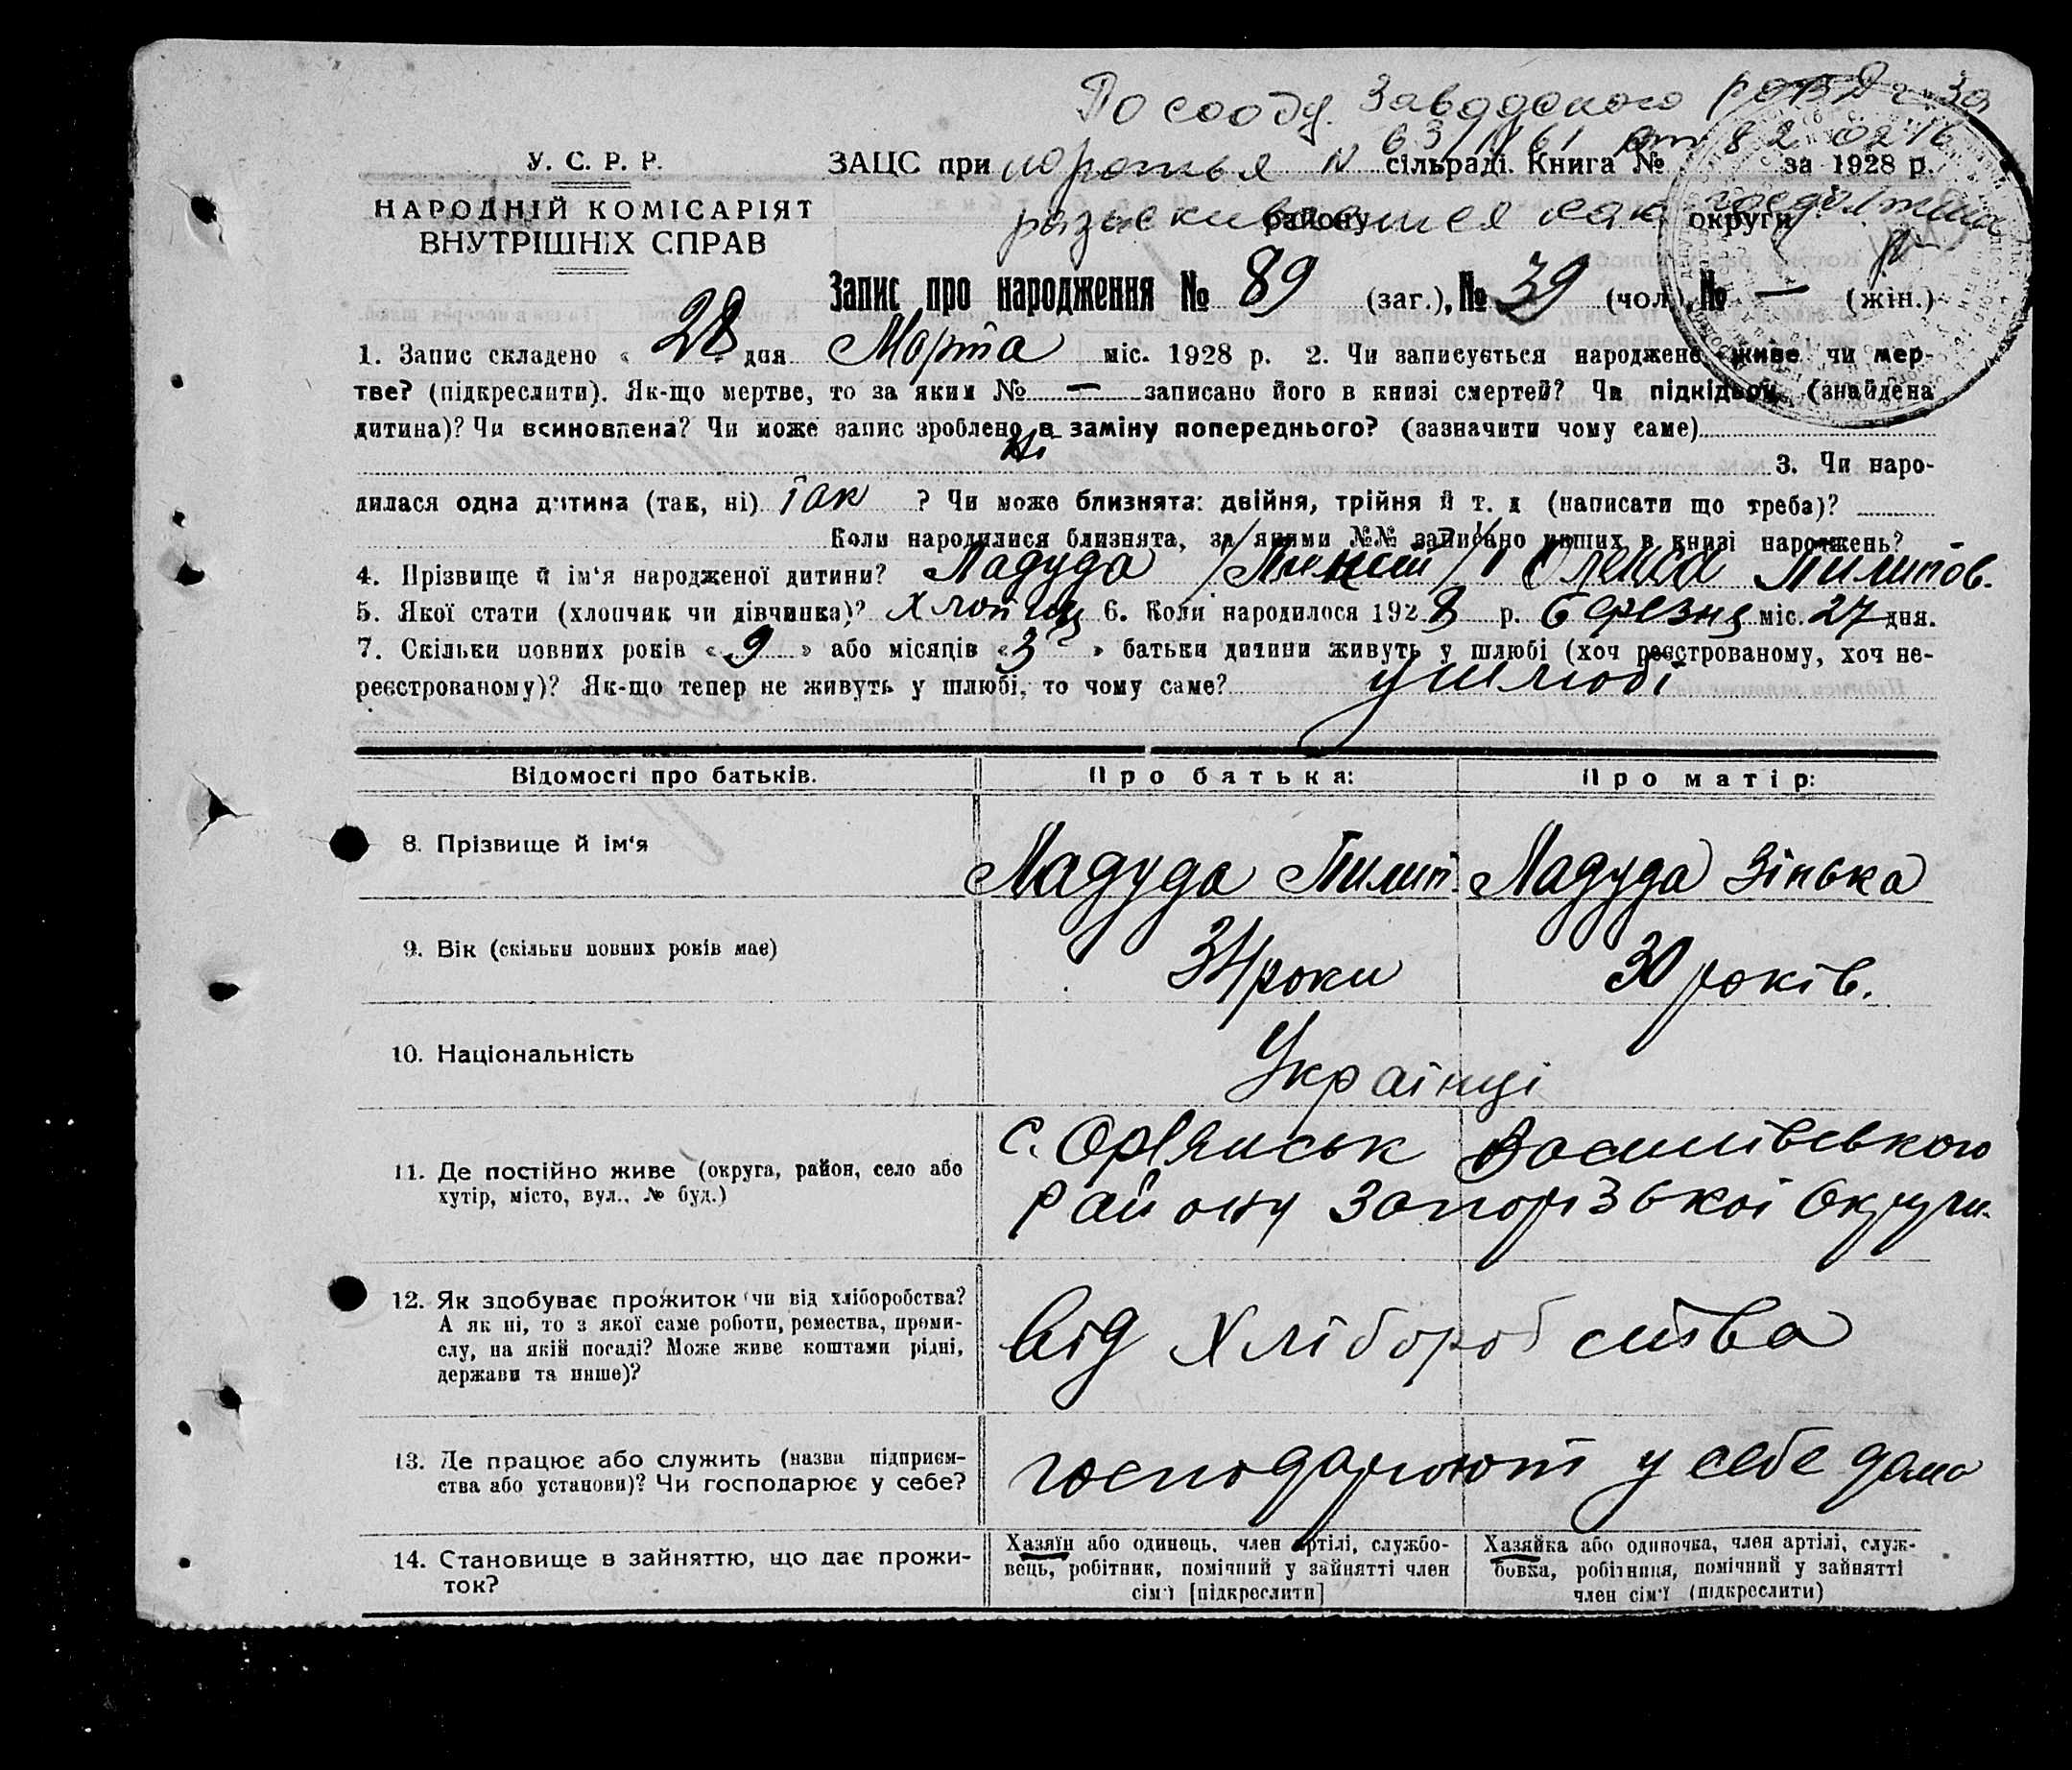 По сообщ. Заводского
У. С. Р. Р.
НАРОДНІЙ КОМІСАРІЯТ
ВНУТРІШНІХ СПРАВ
ЗАЦС при сільраді. Книга № за 1928 р.
району округи
Запис про народження № 89 (заг.), № 39 (чол.) № — (жін.)
1. Запис складено « 28 » дня Марта міс. 1928 р. 2. Чи записується народжене живе чи мер-
тве? (підкреслити). Як-що мертве, то за яким № — записано його в книзі смертей? Чи підкідьок (знайдена
дитина)? Чи всиновлена? Чи може запис зроблено в заміну попереднього? (зазначити чому саме)
ні
3. Чи наро-
дилася одна дитина (так, ні) так ? Чи може близнята: двійня, трійня й т. д (написати що треба)?
Коли народилися близнята, за якими №№ записано инших в книзі народжень?
4. Прізвище й ім'я народженої дитини? Ладуда Олекса Пилипов.
5. Якої стати (хлопчик чи дівчинка)? Хлопець 6. Коли народилося 1928 р. березня міс. 27 дня.
7. Скільки повних років « 9 » або місяців « 3 » батьки дитини живуть у шлюбі (хоч реєстрованому, хоч не-
реєстрованому)? Як-що тепер не живуть у шлюбі, то чому саме? у шлюбі
Відомості про батьків. Про батька: Про матір:
8. Прізвище й ім'я Ладуда Пилип. Ладуда Зінька
9. Вік (скільки повних років має) 34 роки 30 років.
10. Національність Українці
11. Де постійно живе (округа, район, село або
хутір, місто, вул., № буд.)
с. Орлянськ Василівського
району Запорізької Округи.
12. Як здобуває прожиток чи від хліборобства?
А як ні, то з якої саме роботи, ремества, проми-
слу, на якій посаді? Може живе коштами рідні,
держави та инше)?
від Хліборобства
13. Де працює або служить (назва підприєм-
ства або установи)? Чи господарює у себе?
господарюют у себе дома
14. Становище в зайняттю, що дає прожи-
ток?
Хазяїн або одинець, член артілі, службо-
вець, робітник, помічний у зайнятті член
сім'ї [підкреслити]
Хазяйка або одиночка, член артілі, служ-
бовка, робітниця, помічний у зайнятті
член сім'ї (підкреслити)